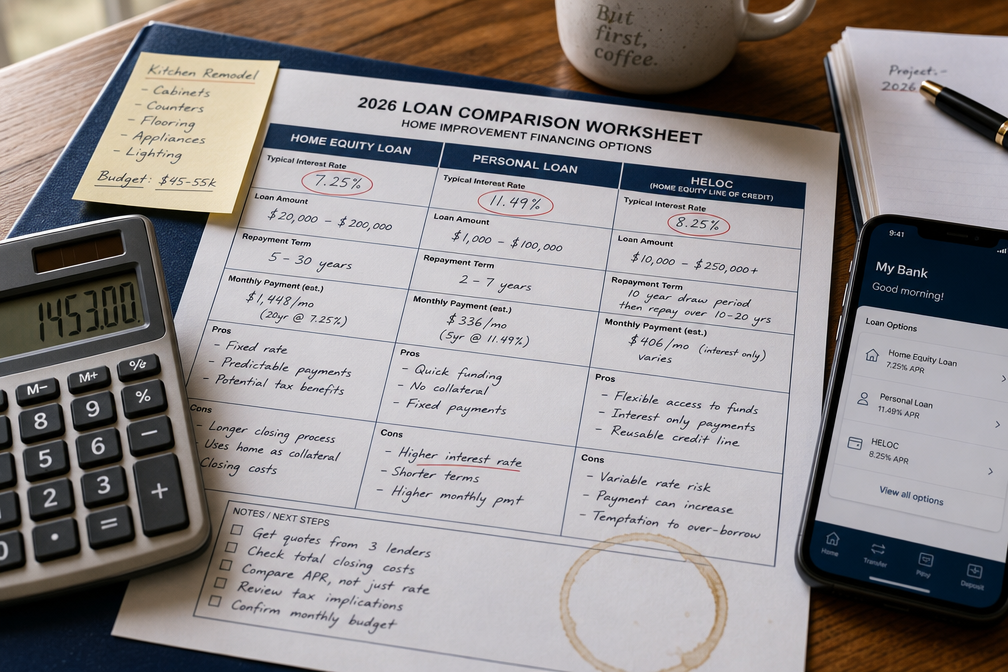 But
first,
coffee.
Kitchen Remodel
- Cabinets
- Counters
- Flooring
- Appliances
- Lighting
Budget: $45-55k
Project:-
2026
2026 LOAN COMPARISON WORKSHEET
HOME IMPROVEMENT FINANCING OPTIONS
HOME EQUITY LOAN
Typical Interest Rate
7.25%
Loan Amount
$20,000 - $200,000
Repayment Term
5 - 30 years
Monthly Payment (est.)
$1,448/mo
(20yr @ 7.25%)
Pros
- Fixed rate
- Predictable payments
- Potential tax benefits
Cons
- Longer closing process
- Uses home as collateral
- Closing costs
PERSONAL LOAN
Typical Interest Rate
11.49%
Loan Amount
$1,000 - $100,000
Repayment Term
2 - 7 years
Monthly Payment (est.)
$336/mo
(5yr @ 11.49%)
Pros
- Quick funding
- No collateral
- Fixed payments
Cons
- Higher interest rate
- Shorter terms
- Higher monthly pmt
HELOC
(HOME EQUITY LINE OF CREDIT)
Typical Interest Rate
8.25%
Loan Amount
$10,000 - $250,000+
Repayment Term
10 year draw period
then repay over 10-20 yrs
Monthly Payment (est.)
$406/mo (interest only)
varies
Pros
- Flexible access to funds
- Interest only payments
- Reusable credit line
Cons
- Variable rate risk
- Payment can increase
- Temptation to over-borrow
NOTES / NEXT STEPS
Get quotes from 3 lenders
Check total closing costs
Compare APR, not just rate
Review tax implications
Confirm monthly budget
1453.00
M- M+
8 9 %
5 6 -
2 3 +
0 . =
9:41
My Bank
Good morning!
Loan Options
Home Equity Loan
7.25% APR
Personal Loan
11.49% APR
HELOC
8.25% APR
View all options
Home
Transfer
Deposit